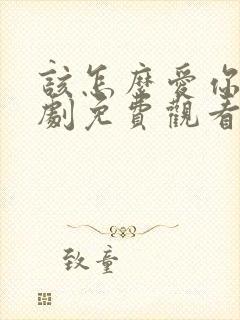 該怎麼愛你
劇免費觀看
致童